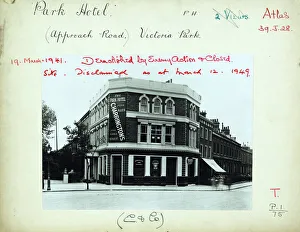 Park Hotel. P11 2 Views Atlas
(Approach Road) Victoria Park 39.J.28.
19. March 1941. Demolished by Enemy Action & Closed.
Site. Disclaimed as at March 12. 1949.
PARK HOTEL
CHARRINGTON'S
T
P.1
75
(C & Co)